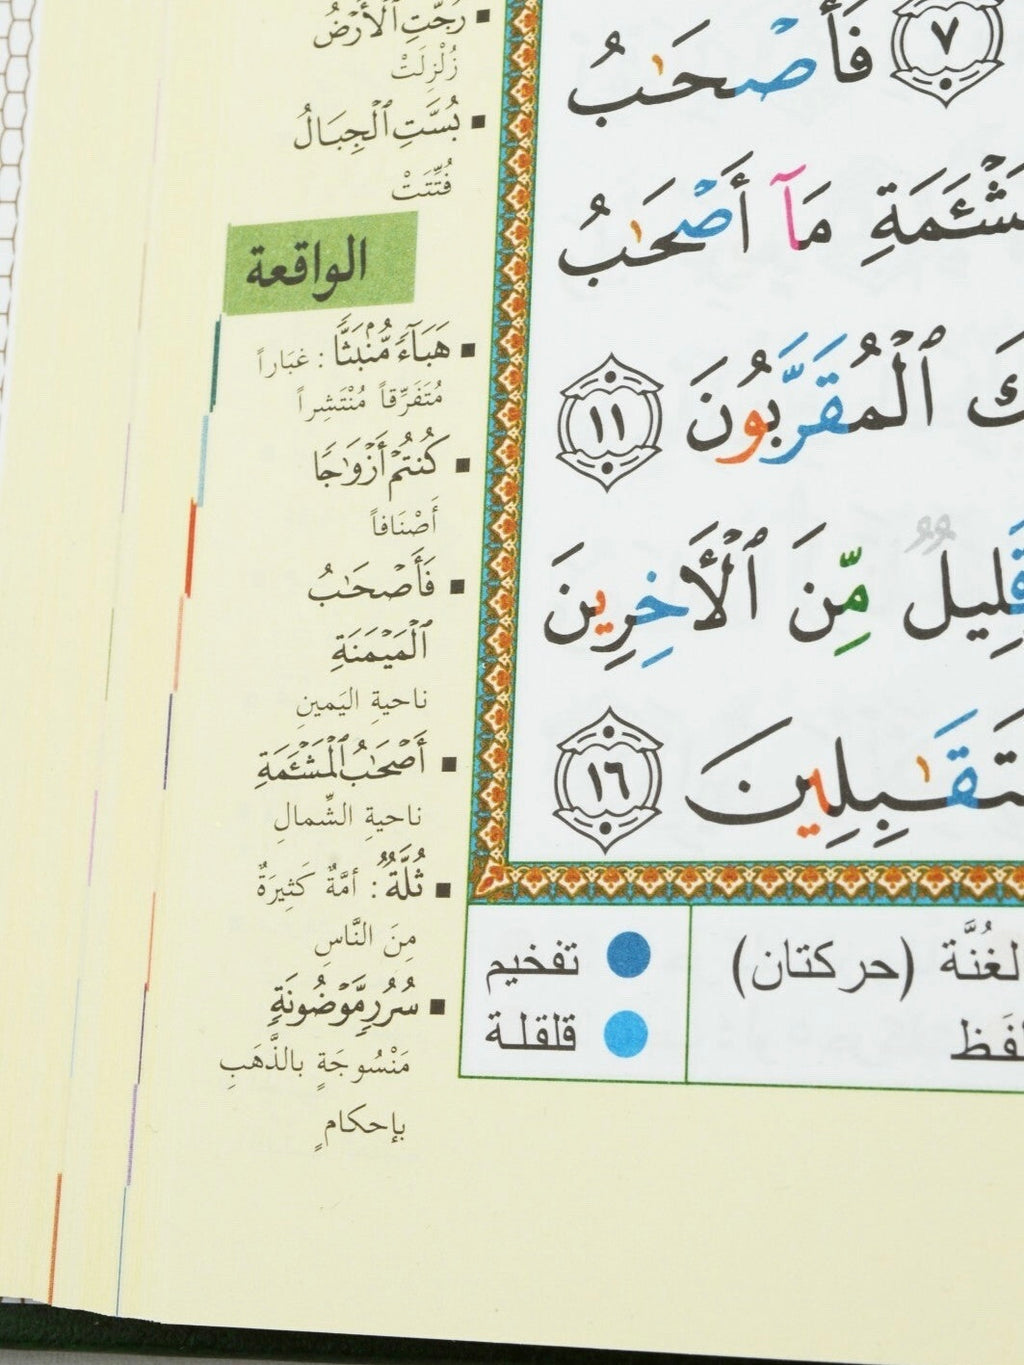 ٧ فَأَصْحَٰبُ
مَآ أَصْحَٰبُ
ٱلْمُقَرَّبُونَ ١١
مِّنَ ٱلْأَخِرِينَ
١٦
رُجَّتِ ٱلْأَرْضُ
زُلْزِلَتْ
بُسَّتِ ٱلْجِبَالُ
فُتِّتَتْ
الواقعة
هَبَآءً مُّنۢبَثًّا : غبَاراً
مُتَفَرِّقاً مُنْتَشِراً
كُنتُمْ أَزْوَٰجًا
أَصْنَافاً
فَأَصْحَٰبُ
ٱلْمَيْمَنَةِ
ناحيةِ اليَمينِ
أَصْحَٰبُ ٱلْمَشْـَٔمَةِ
ناحيةِ الشِّمالِ
ثُلَّةٌ : أمَّةٌ كَثِيرَةٌ
مِنَ النَّاسِ
سُرُرٍ مَّوْضُونَةٍ
مَنْسُوجَةٍ بالذَّهَبِ
بإحكامٍ
(حركتان)
تفخيم
قلقلة